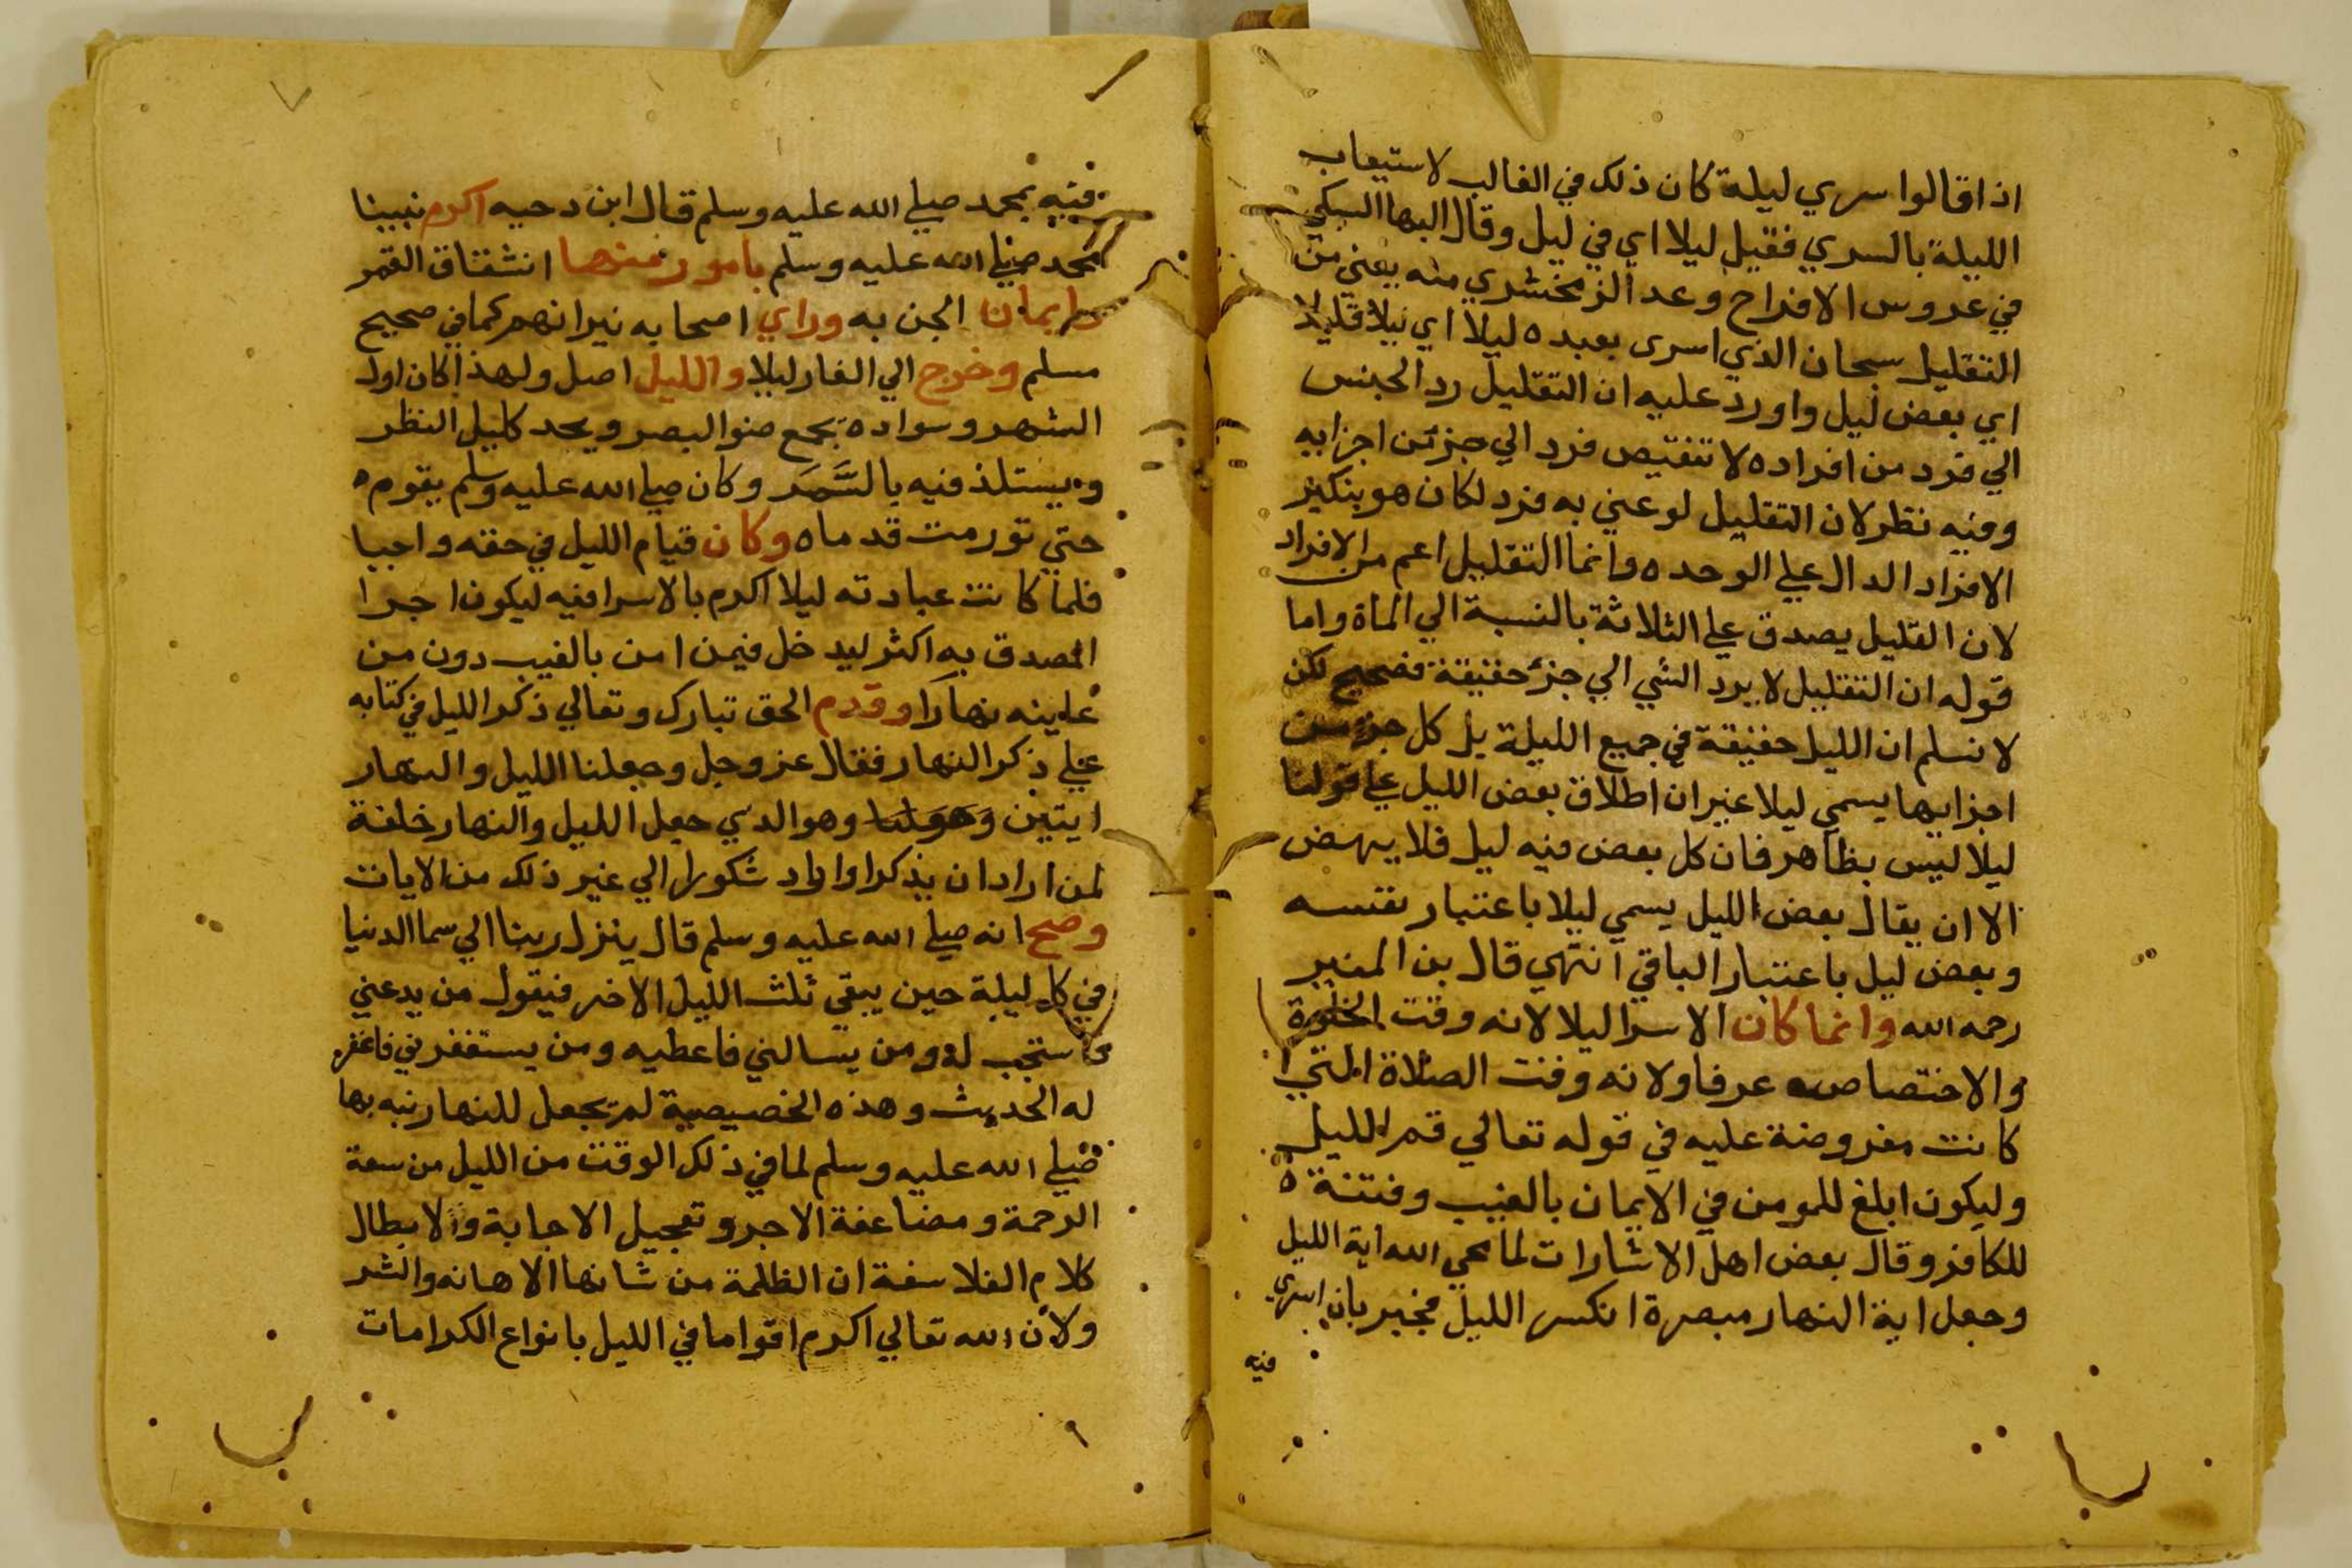 اذا قالوا سري ليلة كان ذلك في الغالب لاستيعاب
الليلة بالسري فقيل ليلا اي في ليل وقال البها السبكي
في عروس الافراح وعد الزمخشري منه يعني من
التقليل سبحان الذي اسرى بعبده ليلا اي ليلا قليلا
اي بعض ليل واورد عليه ان التقليل رد الجنس
الي فرد من افراده لا تنقيص فرد الي جزئ من اجزايه
وفيه نظر لان التقليل لو عني به فرد لكان هو بتكير
الافراد الدال علي الوحده وانما التقليل اعم من الافراد
لان القليل يصدق علي الثلاثة بالنسبة الي الماة واما
قوله ان التقليل لا يرد الشي الي جزئ حقيقة فصحيح لكن
لا نسلم ان الليل حقيقة في جميع الليلة بل كل جزء من
اجزايها يسمي ليلا غير ان اطلاق بعض الليل علي قولنا
ليلا ليس بظاهر فان كل بعض منه ليل فلا ينهض
الا ان يقال بعض الليل يسمي ليلا باعتبار نفسه
وبعض ليل باعتبار الباقي انتهي قال بن المنير
رحمه الله وانما كان الاسرا ليلا لانه وقت الخلوة
والاختصاص عرفا ولانه وقت الصلاة التي
كانت مفروضة عليه في قوله تعالي قم الليل
وليكون ابلغ للمومن في الايمان بالغيب وفتنة
للكافر وقال بعض اهل الاشارات لما محي الله اية الليل
وجعل اية النهار مبصرة انكسر الليل فجبر بان اسري
فيه
فيه بمحمد صلي الله عليه وسلم قال ابن دحيه اكرم نبينا
محمد صلي الله عليه وسلم بامور منها انشقاق القمر
وايمان الجن به وراي اصحابه نيرانهم كما في صحيح
مسلم وخرج الي الغار ليلا والليل اصل ولهذا كان اول
الشهر وسواده يجمع ضو البصر ويحد كليل النظر
ويستلذ فيه بالسَّمَر وكان صلي الله عليه وسلم يقوم
حتي تورمت قدماه وكان قيام الليل في حقه واجبا
فلما كانت عبادته ليلا اكرم بالاسرا فيه ليكون اجرا
المصدق به اكثر ليدخل فيمن امن بالغيب دون من
عاينه نهارا وقدم الحق تبارك وتعالي ذكر الليل في كتابه
علي ذكر النهار فقال عز وجل وجعلنا الليل والنهار
ايتين وهو الذي جعل الليل والنهار خلفة
لمن اراد ان يذكر او اراد شكورا الي غير ذلك من الايات
وصح انه صلي الله عليه وسلم قال ينزل ربنا الي سما الدنيا
في كل ليلة حين يبقي ثلث الليل الاخر فيقول من يدعني
فاستجب له ومن يسالني فاعطيه ومن يستغفرني فاغفر
له الحديث وهذه الخصيصية لم تجعل للنهار نبه بها
صلي الله عليه وسلم لما في ذلك الوقت من الليل من سعة
الرحمة ومضاعفة الاجر وتعجيل الاجابة والابطال
كلام الفلاسفة ان الظلمة من شانها الاهانه والشر
ولان الله تعالي اكرم اقواما في الليل بانواع الكرامات